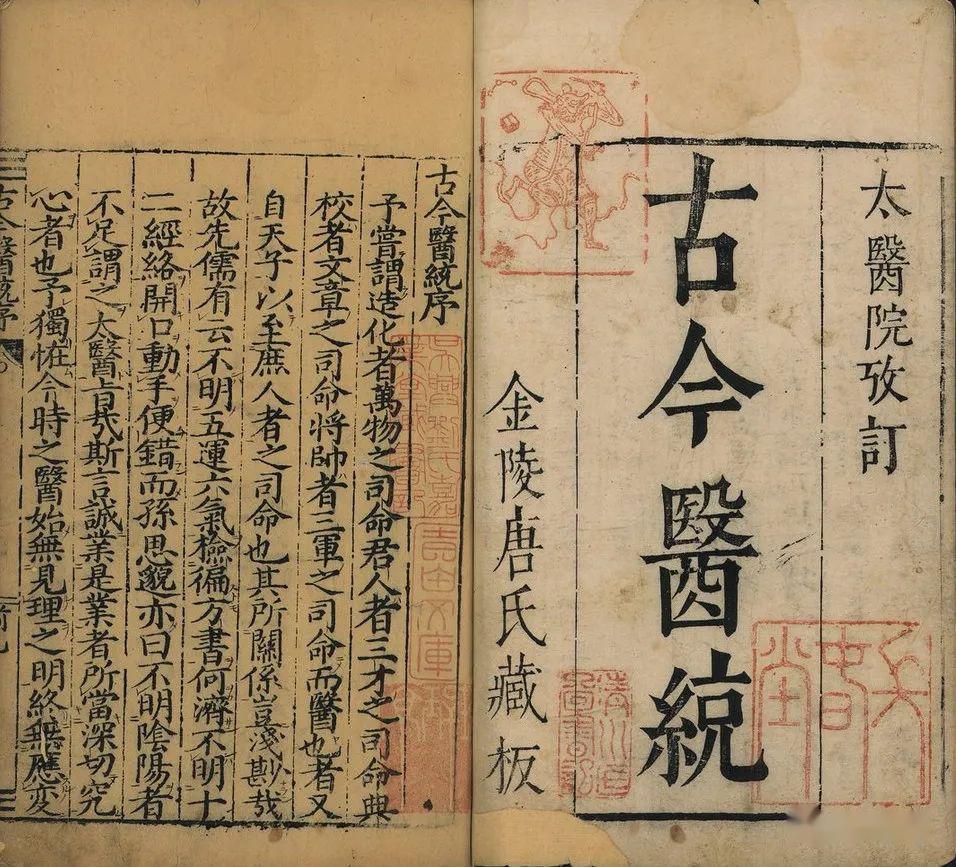 太醫院攷訂
古今醫統
金陵唐氏藏板
古今醫統序
予嘗謂造化者萬物之司命君人者三才之司命典
校者文章之司命將帥者三軍之司命而醫也者又
自天子以至庶人者之司命也其所關係豈淺尠哉
故先儒有云不明五運六氣檢偏方書何濟不明十
二經絡開口動手便錯而孫思邈亦曰不明陰陽者
不足謂之太醫旨哉斯言誠業是業者所當深切究
心者也予獨恠今時之醫始無見理之明終無應変
古今醫統序